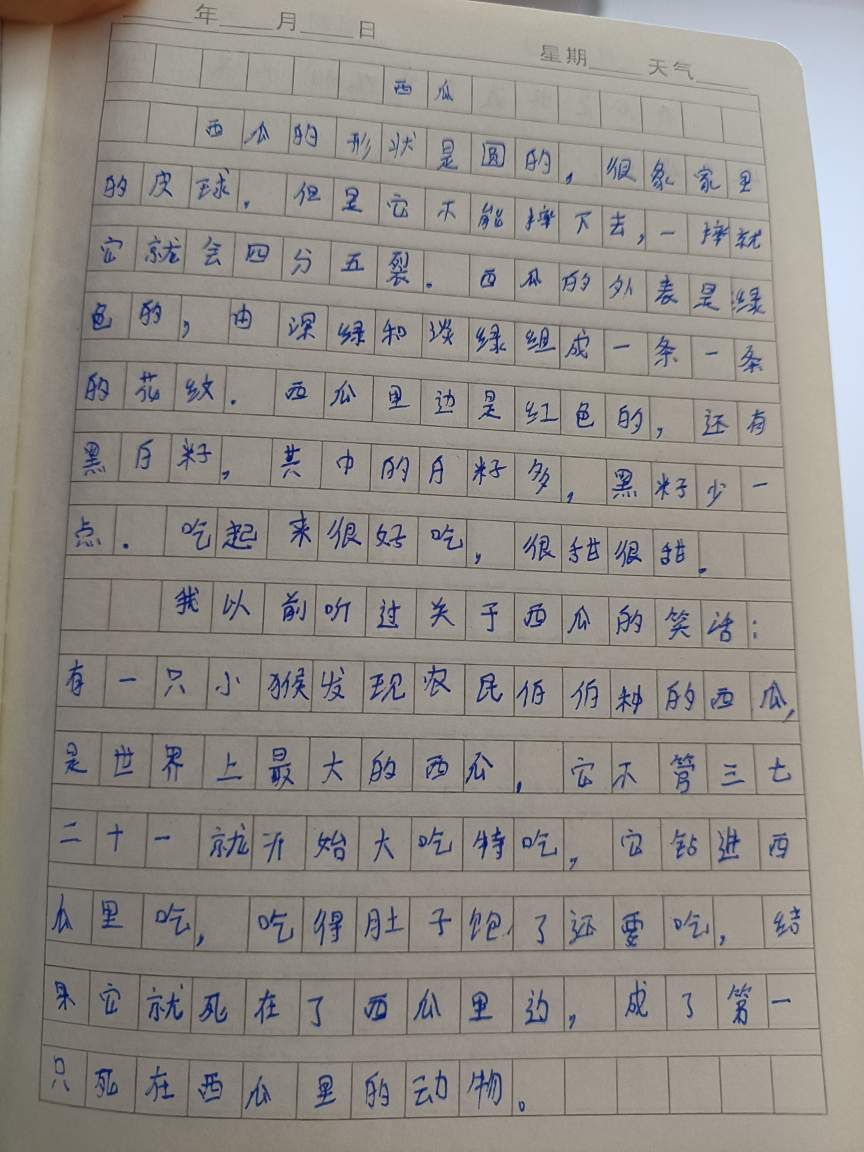 年 月 日
星期 天气
西瓜
西瓜的形状是圆的，很象家里
的皮球．但是它不能摔下去，一摔就
它就会四分五裂．西瓜的外表是绿
色的，由深绿和淡绿组成一条一条
的花纹．西瓜里边是红色的，还有
黑白籽，其中的白籽多，黑籽少一
点．吃起来很好吃，很甜很甜。
我以前听过关于西瓜的笑话：
有一只小猴发现农民伯伯种的西瓜，
是世界上最大的西瓜，它不管三七
二十一就开始大吃特吃，它钻进西
瓜里吃，吃得肚子饱了还要吃，结
果它就死在了西瓜里边，成了第一
只死在西瓜里的动物。